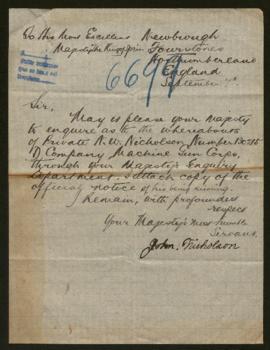 To His Most Excellent Newbrough
Majesty the King of Spain Fourstones
Northumberland
England
September
669
Sir,
May it please your majesty
to enquire as to the whereabouts
of Private N.W. Nicholson, Number
D Company Machine Gun Corps,
through your Majesty's Enquiry
Department. I attach copy of the
official notice of his being missing.
I remain, with profoundest
respect
Your Majesty's most humble
Servant,
John Nicholson